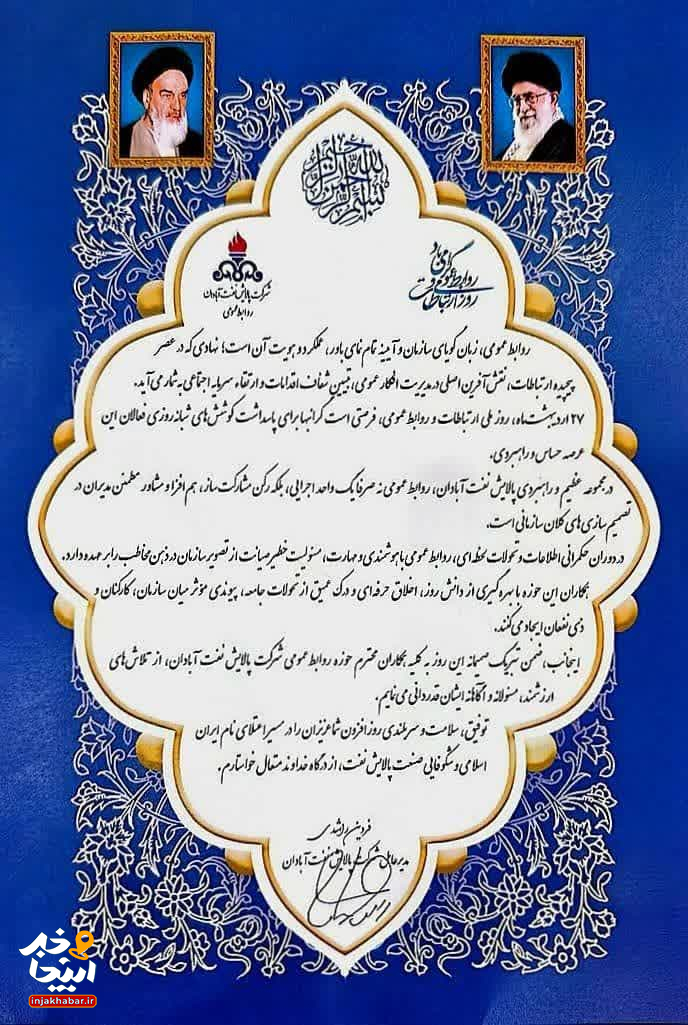 بسم الله الرحمن الرحیم
روز ارتباطات و
روابط عمومی
گرامی باد
شرکت پالایش نفت آبادان
روابط عمومی
روابط عمومی، زبان گویای سازمان و آیینه تمام نمای باور، عملکرد و هویت آن است؛ نهادی که در عصر
پیچیده ارتباطات، نقش آفرین اصلی در مدیریت افکار عمومی، تبیین شفاف اقدامات و ارتقاء سرمایه اجتماعی به شمار می آید.
۲۷ اردیبهشت ماه، روز ملی ارتباطات و روابط عمومی، فرصتی است گرانبها برای پاسداشت کوشش های شبانه روزی فعالان این
عرصه حساس و راهبردی.
در مجموعه عظیم و راهبردی پالایش نفت آبادان، روابط عمومی نه صرفا یک واحد اجرایی، بلکه رکن مشارکت ساز، هم افزا و مشاور مطمئن مدیران در
تصمیم سازی های کلان سازمانی است.
در دوران حکمرانی اطلاعات و تحولات لحظه ای، روابط عمومی با هوشمندی و مهارت، مسئولیت خطیر صیانت از تصویر سازمان در ذهن مخاطب را بر عهده دارد.
همکاران این حوزه با بهره گیری از دانش روز، اخلاق حرفه ای و درک عمیق از تحولات جامعه، پیوندی مؤثر میان سازمان، کارکنان و
ذی نفعان ایجاد می کنند.
اینجانب، ضمن تبریک صمیمانه این روز به کلیه همکاران محترم حوزه روابط عمومی شرکت پالایش نفت آبادان، از تلاش های
ارزشمند، مسئولانه و آگاهانه ایشان قدردانی می نمایم.
توفیق، سلامت و سربلندی روزافزون شما عزیزان را در مسیر اعتلای نام ایران
اسلامی و شکوفایی صنعت پالایش نفت، از درگاه خداوند متعال خواستارم.
فردین راشدی
مدیرعامل شرکت پالایش نفت آبادان
اینجا خبر
injakhabar.ir